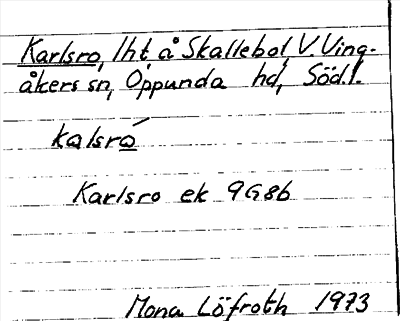 Karlsro, lht å Skallebol, V. Ving-
åkers sn, Oppunda hd, Söd.l.
kalsró
Karlsro ek 9G8b
Mona Löfroth 1973